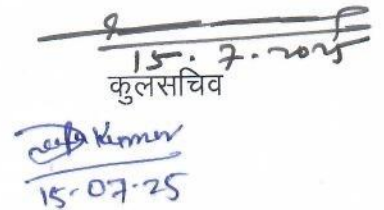 15.7.2025
कुलसचिव
Kumar
15-07-25